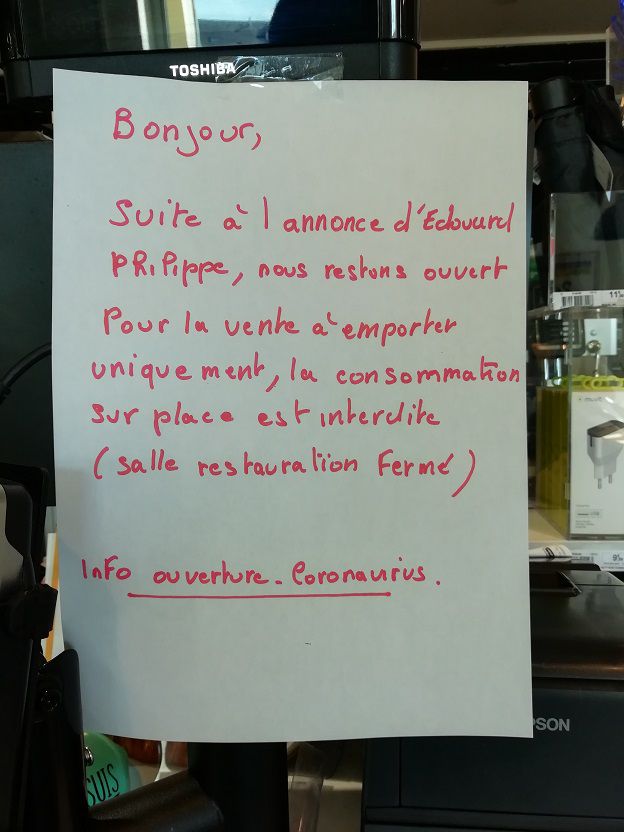 TOSHIBA
Bonjour,
Suite à l'annonce d'Edouard
PHilippe, nous restons ouvert
Pour la vente à emporter
uniquement, la consommation
sur place est interdite
(salle restauration Fermé)
Info ouverture - Coronavirus.
muvit
PSON
SUIS